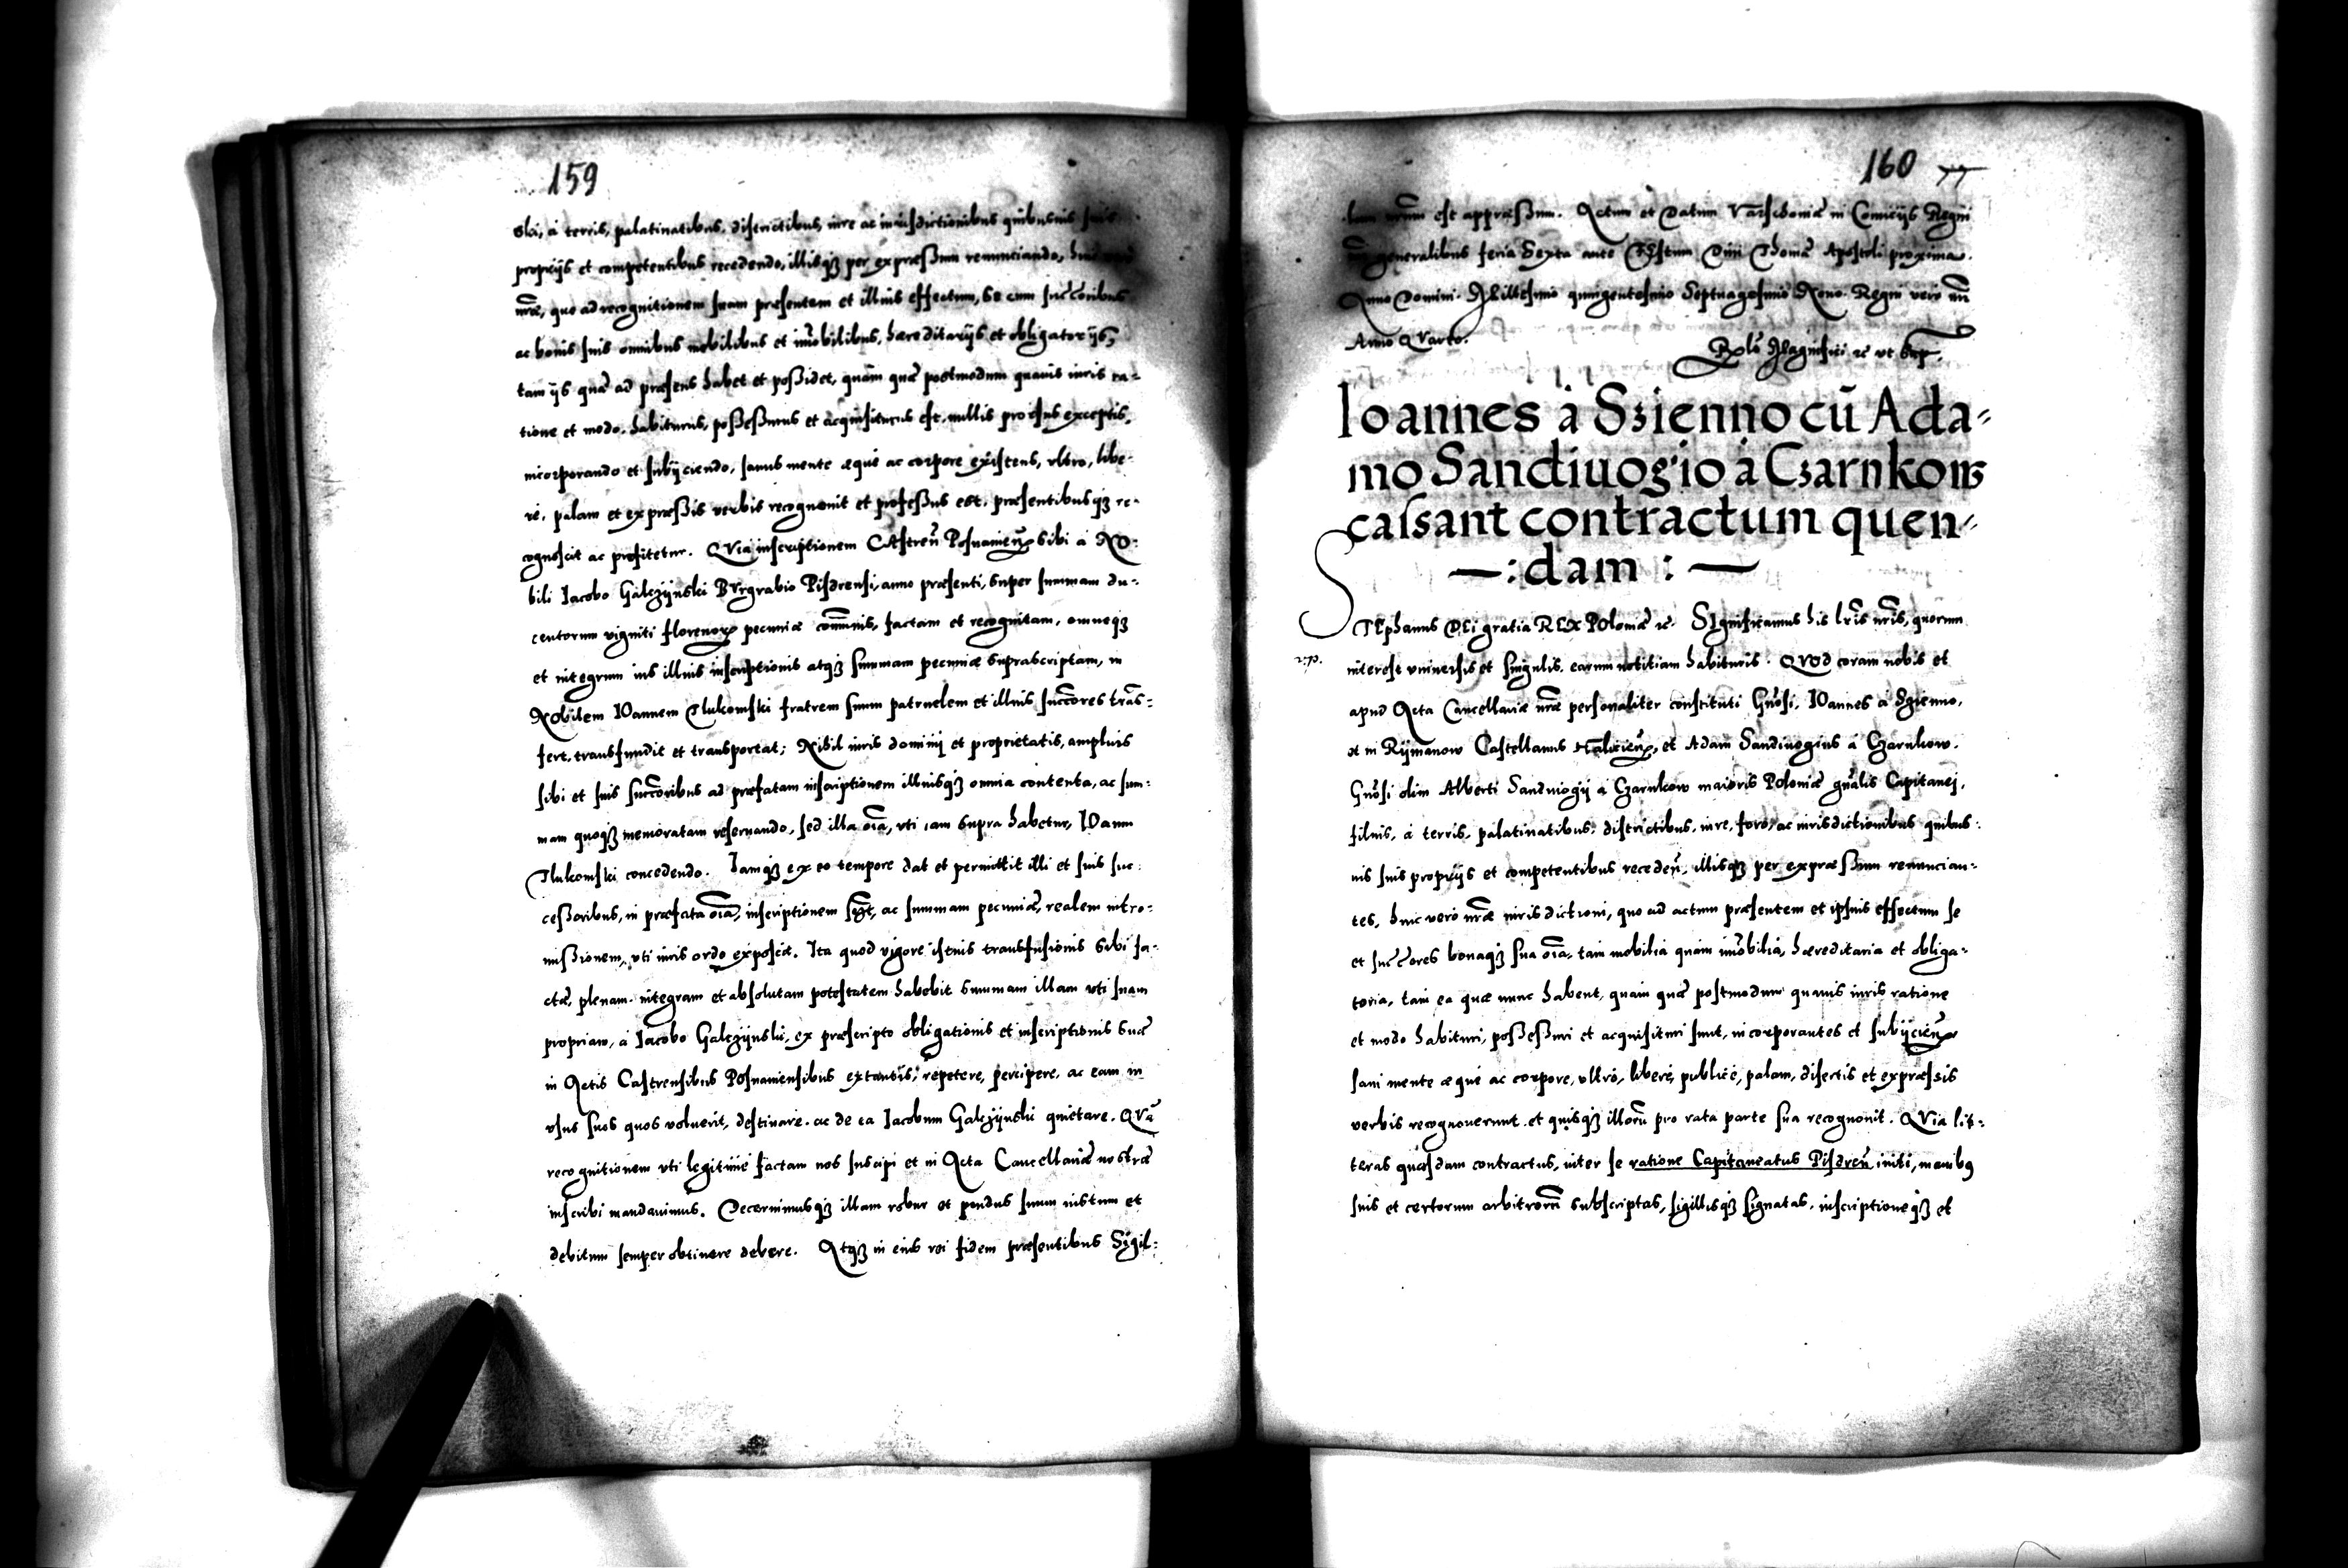 159
ski, à terris, palatinatibus, districtibus, iure ac iurisdictionibus quibusuis suis
proprijs et competentibus recedendo, illisqꝫ per expræssum renunciando,
nr̃æ, quo ad recognitionem suam præsentem et illius effectum, se cum succ̃oribus
ac bonis suis omnibus mobilibus et im̃obilibus, hæreditarijs et obligatorijs,
tam ijs quæ ad præsens habet et possidet, quàm quæ postmodum quauis iuris ra-
tione et modo, habiturus, possessurus et acquisiturus est, nullis prorsus exceptis,
incorporando et subijciendo, sanus mente æquè ac corpore existens, vltro, libe-
rè, palam et expræssis verbis recognouit et professus est, præsentibusqꝫ re-
cognoscit ac profitetur. QVia inscriptionem CAstreñ Posnanieñ sibi à No-
bili Iacobo Gałczÿnski BVrgrabio Pisdrensi, anno præsenti, super summam du-
centorum viginti florenoꝝ pecuniæ com̃unis, factam et recognitam, omneqꝫ
et integrum ius illius inscriptionis atqꝫ summam pecuniæ suprascriptam, in
Nobilem IOannem Tlukomski fratrem suum patruelem et illius succ̃ores trãs-
fert, transfundit et transportat; Nihil iuris dominij et proprietatis, amplius
sibi et suis succ̃oribus ad præfatam inscriptionem illiusqꝫ omnia contenta, ac sum-
mam quoqꝫ memoratam reseruando, sed illa oĩa, vti iam supra habetur, IOanni
Tlukomski concedendo. Iamqꝫ ex eo tempore dat et permittit illi et suis suc-
cessoribus, in præfata oĩa, inscriptionem ac summam pecuniæ, realem intro-
missionem, vti iuris ordo exposcit. Ita quod vigore istius transfusionis sibi fa-
ctæ, plenam, integram et absolutam potestatem habebit summam illam vti suam
propriam, à Iacobo Gałczÿnski, ex præscripto obligationis et inscriptionis suæ
in Actis Castrensibus Posnaniensibus extantis, repetere, percipere, ac eam in
vsus suos quos voluerit, destinare, ac de ea Iacobum Gałczÿnski quietare. QVã
recognitionem vti legitimè factam nos suscipi et in Acta Cancellariæ nostræ
inscribi mandauimus. Decernimusqꝫ illam robur et pondus suum iustum et
debitum semper obtinere debere. Atqꝫ in eius rei fidem præsentibus Sigil-
160
lum nr̃um est appræssum. Actum et Datum Varschouiæ in Comicijs Regni
generalibus feria Sexta ante FEstum Diui Thomæ Apostoli proxima.
Anno Domini Millesimo quingentesimo Septuagesimo Nono. Regni vero nr̃i
Anno QVarto.
Rel̃o Magnifici &c̃ vt Sup̃.
Ioannes à Szienno cũ Ada-
mo Sandiuogio à Czarnkow
cassant contractum quen-
—: dam : —
STEphanus DEi gratia REX POloniæ &c̃. SIgnificamus his lr̃is nr̃is, quorum
interest vniuersis et singulis, earum notitiam habituris. QVod coram nobis et
apud Acta Cancellariæ nr̃æ personaliter constituti Gñosi, IOannes à Szienno,
et in Rÿmanow Castellanus Halicieñ, et Adam Sandiuogius à Czarnkow,
Gñosi olim Alberti Sandiuogij à Czarnkow maioris Poloniæ gñalis Capitanei,
filius, à terris, palatinatibus, districtibus, iure, foro, ac iurisdictionibus quibus-
uis suis proprijs et competentibus recedeñ, illisqꝫ per expræssum renuncian-
tes, huic verò nr̃æ iurisdictioni, quo ad actum præsentem et ipsius effectum se
et succ̃ores bonaqꝫ sua oĩa, tam mobilia quàm im̃obilia, hæreditaria et obliga-
toria, tam ea quæ nunc habent, quàm quæ postmodum quauis iuris ratione
et modo habituri, possessuri et acquisituri sunt, incorporantes et subijcieñ
sani mente æquè ac corpore, vltrò, liberè, publicè, palam, disertis et expræssis
verbis recognouerunt, et quisqꝫ illorũ pro rata parte sua recognouit. QVia lit-
teras quasdam contractus, inter se ratione Capitaneatus Pisdreñ initi, manibꝯ
suis et certorum arbitrorũ subscriptas, sigillisqꝫ signatas, inscriptioneqꝫ et